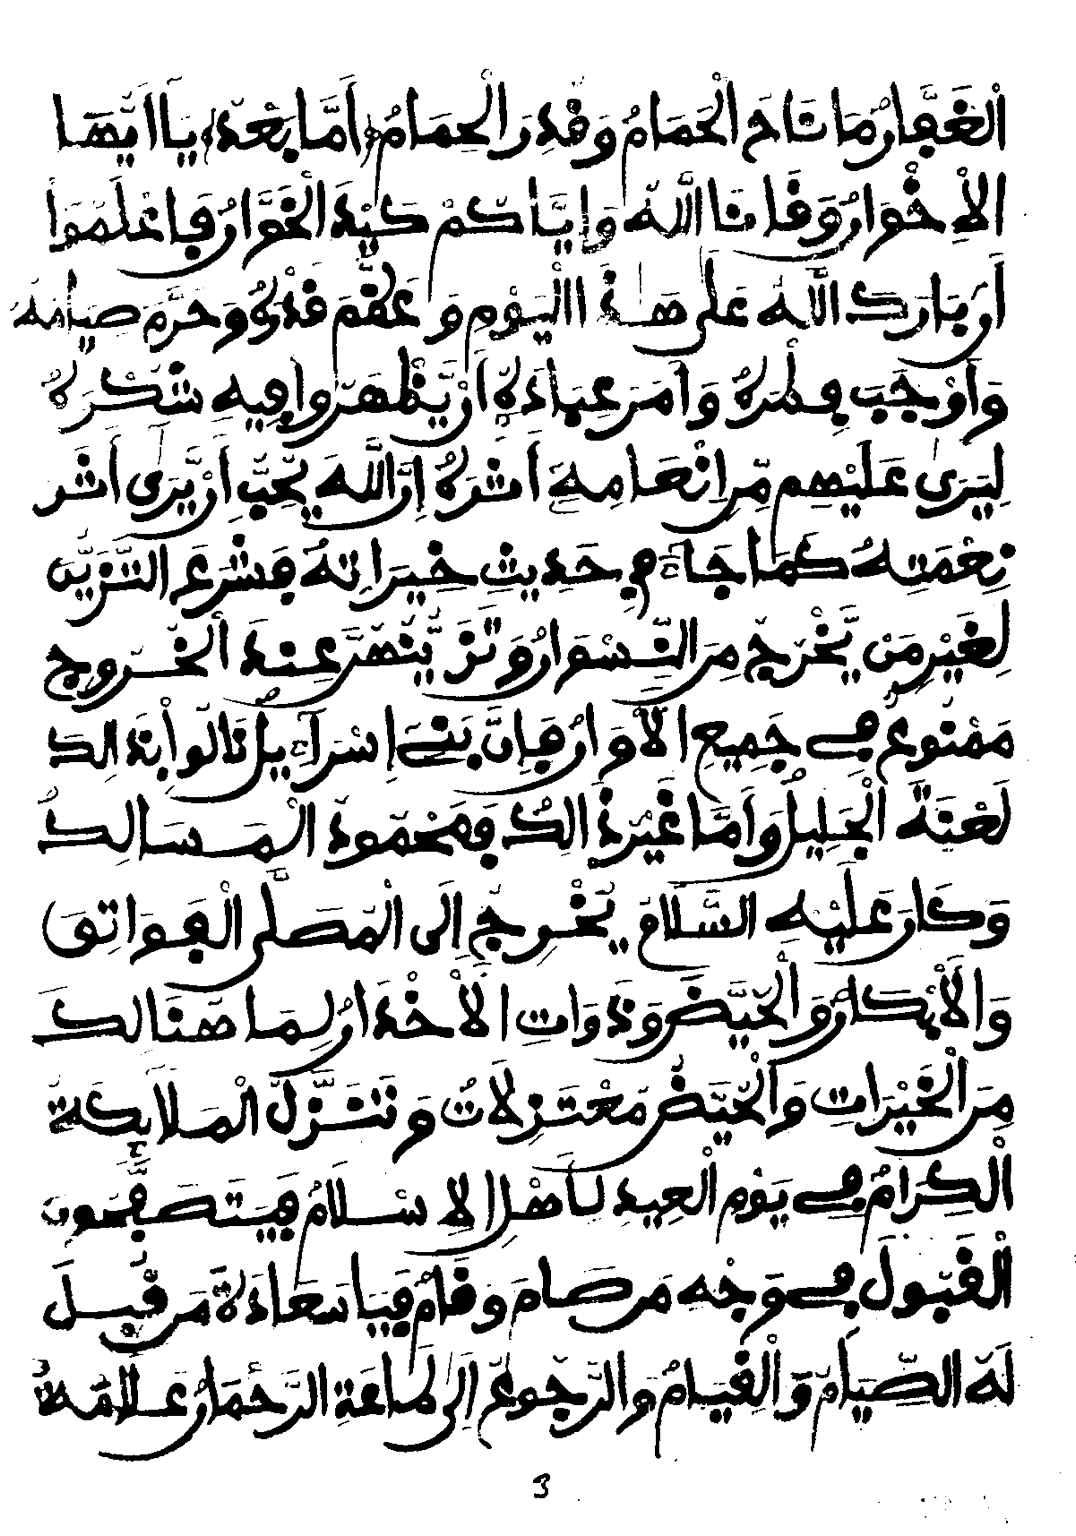 الْغَفَّارُ مَا نَاحَ الْحَمَامُ وَقُدِّرَ الْحِمَامُ أَمَّا بَعْدُ يَا أَيُّهَا
الْإِخْوَانُ وَقَانَا اللَّهُ وَإِيَّاكُمْ كَيْدَ الْخَوَّانِ فَاعْلَمُوا
أَنْ بَارَكَ اللَّهُ عَلَى هَذَا الْيَوْمِ وَعَظَّمَ قَدْرَهُ وَحَرَّمَ صِيَامَهُ
وَأَوْجَبَ فِطْرَهُ وَأَمَرَ عِبَادَهُ أَنْ يُظْهِرُوا فِيهِ شُكْرَهُ
لِيَرَى عَلَيْهِمْ مِنْ إِنْعَامِهِ أَثَرَهُ إِنَّ اللَّهَ يُحِبُّ أَنْ يَرَى أَثَرَ
نِعْمَتِهِ كَمَا جَاءَ فِي حَدِيثِ خِيَرَاتِهِ فَشَرَعَ التَّزَيُّنَ
لِغَيْرِ مَنْ يَخْرُجُ مِنَ النِّسْوَانِ وَتَزَيُّنُهُنَّ عِنْدَ الْخُرُوجِ
مَمْنُوعٌ فِي جَمِيعِ الْأَوَانِ فَإِنَّ بَنِي إِسْرَاءِيلَ نَالُوا بِذَالِكَ
لَعْنَةَ الْجَلِيلِ وَأَمَّا غَيْرُ ذَالِكَ فَمَحْمُودُ الْمَسَالِكِ
وَكَانَ عَلَيْهِ السَّلَامُ يُخْرِجُ إِلَى الْمُصَلَّى الْعَوَاتِقَ
وَالْأَبْكَارَ وَالْحُيَّضَ وَذَوَاتِ الْأَخْدَارِ لِمَا هُنَالِكَ
مِنَ الْخَيْرَاتِ وَالْحُيَّضُ مُعْتَزِلَاتٌ وَتَتَنَزَّلُ الْمَلَائِكَةُ
الْكِرَامُ فِي يَوْمِ الْعِيدِ لِأَهْلِ الْإِسْلَامِ فَيَتَصَفَّحُونَ
الْقَبُولَ فِي وَجْهِ مَنْ صَامَ وَقَامَ فَيَا سَعَادَةَ مَنْ قُبِلَ
لَهُ الصِّيَامُ وَالْقِيَامُ وَالرُّجُوعُ إِلَى طَاعَةِ الرَّحْمَانِ عَلَامَةُ
3